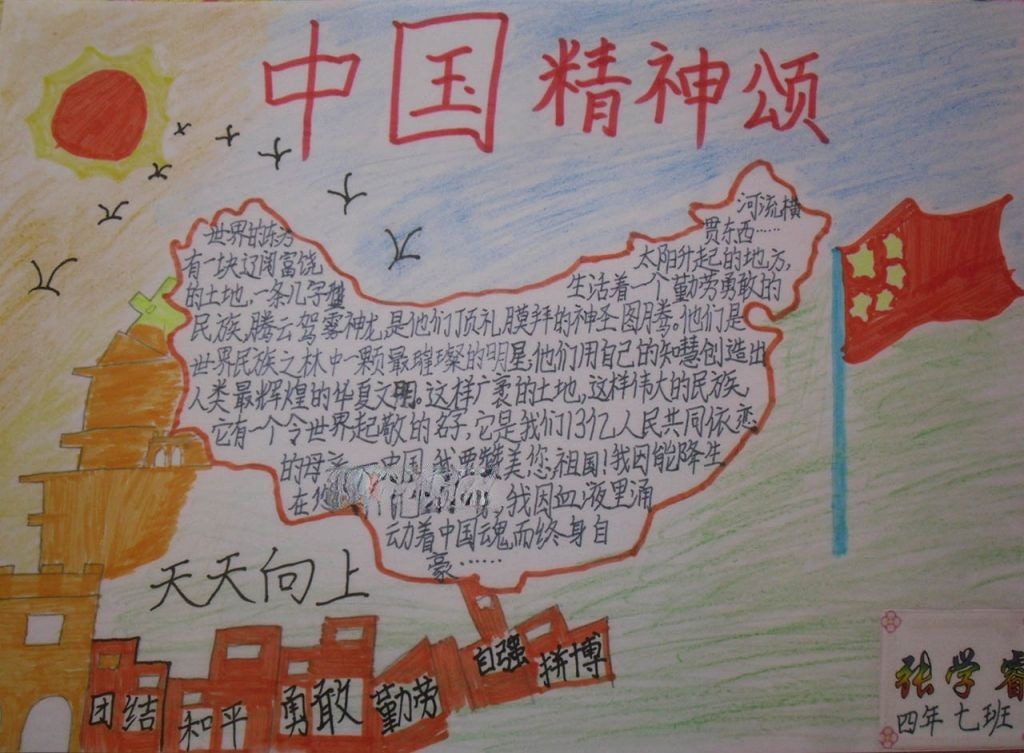 中国精神颂
河流横
贯东西……
世界的东方
太阳升起的地方，
有一块辽阔富饶
生活着一个勤劳勇敢的
的土地，一条几字型
民族，腾云驾雾神龙，是他们顶礼膜拜的神圣图腾。他们是
世界民族之林中一颗最璀璨的明星，他们用自己的知慧创造出
人类最辉煌的华夏文明。这样广袤的土地，这样伟大的民族，
它有一个令世界起敬的名子，它是我们13亿人民共同依恋
的母亲 中国，我要赞美您，祖国！我因能降生
在您 ，我因血液里涌
动着中国魂而终身自
豪……
天天向上
团结
和平
勇敢
勤劳
自强
拼博
张学睿
四年七班